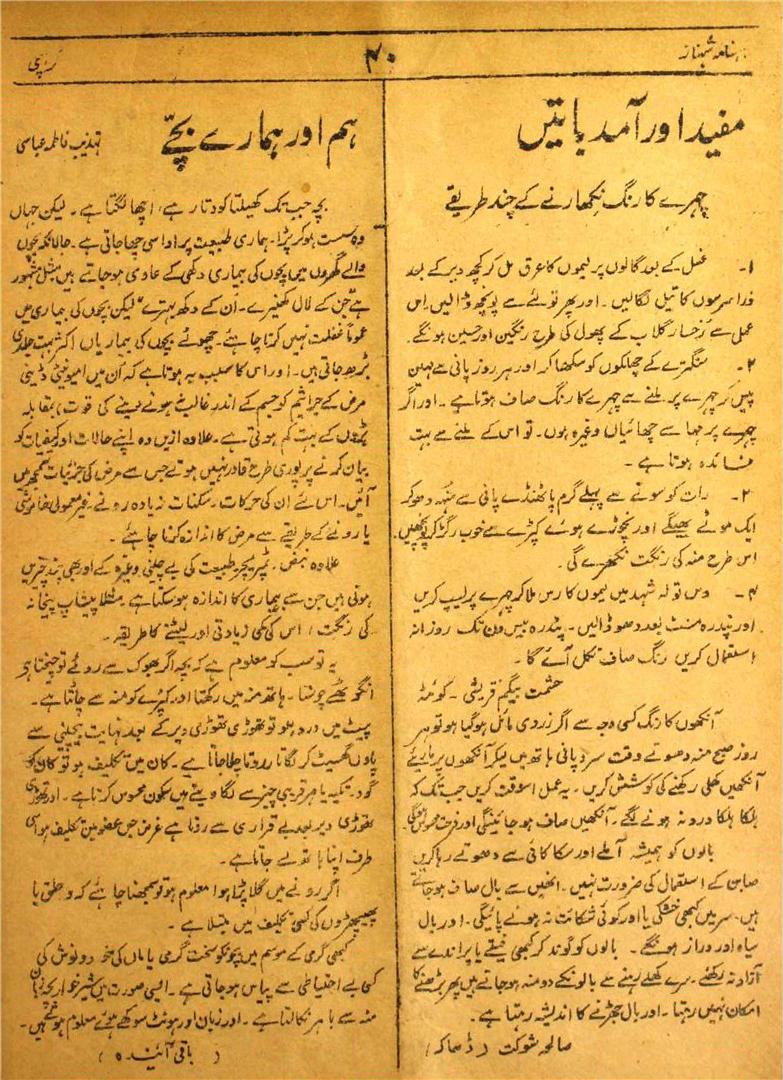 نامہ شہناز
۴۰
کراچی
مفید اور آمد باتیں
چہرے کا رنگ نکھارنے کے چند طریقے
۱۔ غسل کے بعد گالوں پر لیموں کا عرق مل کر کچھ دیر کے بعد
ذرا سرسوں کا تیل لگالیں۔ اور پھر تولئے سے پونچھ ڈالیں۔ اس
عمل سے رخسار گلاب کے پھول کی طرح رنگین اور حسین ہونگے۔
۲۔ سنگترے کے چھلکوں کو سکھا کر اور ہر روز پانی سے مہین
پیس کر چہرے پر ملنے سے چہرے کا رنگ صاف ہوتا ہے۔ اور اگر
چہرے پر مہاسے چھائیاں وغیرہ ہوں۔ تو اس کے ملنے سے بہت
فائدہ ہوتا ہے۔
۳۔ رات کو سونے سے پہلے گرم یا ٹھنڈے پانی سے منہ دھو کر
ایک موٹے بھیگے اور نچوڑے ہوئے کپڑے سے خوب رگڑ کر پونچھیں
اس طرح منہ کی رنگت نکھرے گی۔
۴۔ دس تولہ شہد میں لیموں کا رس ملا کر چہرے پر لیپ کریں
اور پندرہ منٹ بعد دھو ڈالیں۔ پندرہ بیس دن تک روزانہ
استعمال کریں رنگ صاف نکل آئے گا۔
حشمت بیگم قریشی۔ کوئٹہ
آنکھوں کا رنگ کسی وجہ سے اگر زردی مائل ہو گیا ہو تو ہر
روز صبح منہ دھوتے وقت سرد پانی ہاتھ میں لیکر آنکھوں پر ماریئے
آنکھیں کھلی رکھنے کی کوشش کریں۔ یہ عمل اسوقت کریں جب تک کہ
ہلکا ہلکا درد نہ ہونے لگے۔ آنکھیں صاف ہو جائینگی اور فرحت محسوس ہوگی۔
بالوں کو ہمیشہ آملے اور سکا کائی سے دھوتے رہا کریں
صابن کے استعمال کی ضرورت نہیں۔ انھیں سے بال صاف ہو جاتے
ہیں۔ سر میں کبھی خشکی یا اور کوئی شکائت نہ ہونے پائیگی۔ اور بال
سیاہ اور دراز ہونگے۔ بالوں کو گوند کر کبھی فیتے یا پراندے سے
آزاد نہ رکھئے۔ سرے کھلے رہنے سے بالونکے دو منہ ہو جاتے ہیں پھر بڑھنے کا
امکان نہیں رہتا۔ اور بال جھڑنے کا اندیشہ رہتا ہے۔
صالحہ شوکت (ڈھاکہ)
ہم اور ہمارے بچے
تہذیب فاطمہ عباسی
بچہ جب تک کھیلتا کودتا رہے، اچھا لگتا ہے۔ لیکن جہاں
وہ سست ہو کر پڑا۔ ہماری طبیعت پر اداسی چھا جاتی ہے۔ حالانکہ بچوں
والے گھروں میں بچوں کی بیماری دکھی کے عادی ہو جاتے ہیں مثل مشہور
ہے "جن کے لال گھنیرے۔ ان کے دکھ بہترے" لیکن بچوں کی بیماری میں
عموماً غفلت نہیں کرنا چاہئے۔ چھوٹے بچوں کی بیماریاں اکثر بہت جلدی
بڑھ جاتی ہیں۔ اور اس کا سبب یہ ہوتا ہے کہ ان میں امیونیٹی یعنی
مرض کے جراثیم کو جسم کے اندر غالب نہ ہونے دینے کی قوت، بمقابلہ
بڑوں کے بہت کم ہوتی ہے۔ علاوہ ازیں وہ اپنے حالات اور کیفیات کو
بیان کرنے پر پوری طرح قادر نہیں ہوتے جس سے مرض کی جزئیات سمجھ میں
آئیں۔ اس لئے ان کی حرکات، سکنات زیادہ رونے۔ غیر معمولی خاموشی
یا رونے کے طریقے سے مرض کا اندازہ کرنا چاہئے۔
علاوہ نبض۔ ٹمپریچر، طبیعت کی بے چینی وغیرہ کے اور بھی چند چیزیں
ہوتی ہیں جن سے بیماری کا اندازہ ہو سکتا ہے۔ مثلاً پیشاب پیخانہ
کی رنگت، اس کی کمی زیادتی اور لیٹنے کا طریقہ۔
یہ تو سب کو معلوم ہے کہ بچہ اگر بھوک سے روئے تو چیختا ہو
انگوٹھے چوستا۔ ہاتھ منہ میں رکھتا اور کپڑے کو منہ سے چاٹتا ہے۔
پیٹ میں درد ہو تو تھوڑی تھوڑی دیر کے بعد نہایت بے چینی سے
پاؤں گھسیٹ کر لگاتار روتا چلا جاتا ہے۔ کان میں تکلیف ہو تو کان کو
گود۔ تکیہ یا ہر قریبی چیز سے لگا دینے میں سکون محسوس کرتا ہے۔ اور تھوڑی
تھوڑی دیر بعد بے قراری سے روتا ہے غرض جس عضو میں تکلیف ہو اسی
طرف اپنا ہاتھ لے جاتا ہے۔
اگر رونے میں گلا پڑا ہوا معلوم ہو تو سمجھنا چاہئے کہ وہ حلق یا
پھیپھڑوں کی کسی تکلیف میں مبتلا ہے۔
کبھی گرمی کے موسم میں بچونکو سخت گرمی یا ماں کی خورد و نوش کی
کسی بے احتیاطی سے پیاس ہو جاتی ہے۔ ایسی صورت میں شیر خوار بچہ زبان
منہ سے باہر نکالتا ہے۔ اور زبان اور ہونٹ سوکھے ہوئے معلوم ہوتے ہیں۔
(باقی آئندہ)